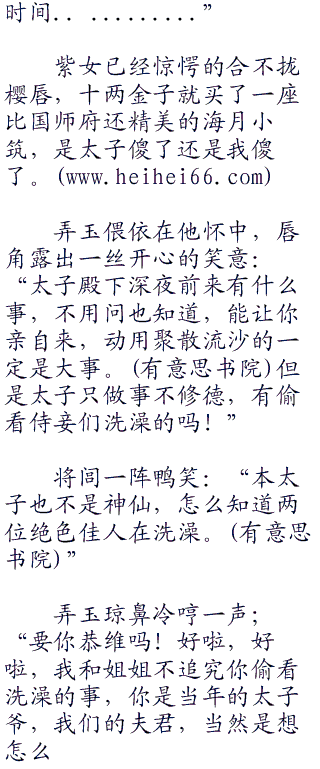 时间.. .........”
紫女已经惊愕的合不拢
樱唇，十两金子就买了一座
比国师府还精美的海月小
筑，是太子傻了还是我傻
了。(www.heihei66.com)
弄玉偎依在他怀中，唇
角露出一丝开心的笑意：
“太子殿下深夜前来有什么
事，不用问也知道，能让你
亲自来，动用聚散流沙的一
定是大事。(有意思书院)但
是太子只做事不修德，有偷
看侍妾们洗澡的吗！”
将闾一阵鸭笑：“本太
子也不是神仙，怎么知道两
位绝色佳人在洗澡。(有意思
书院)”
弄玉琼鼻冷哼一声；
“要你恭维吗！好啦，好
啦，我和姐姐不追究你偷看
洗澡的事，你是当年的太子
爷，我们的夫君，当然是想
怎么